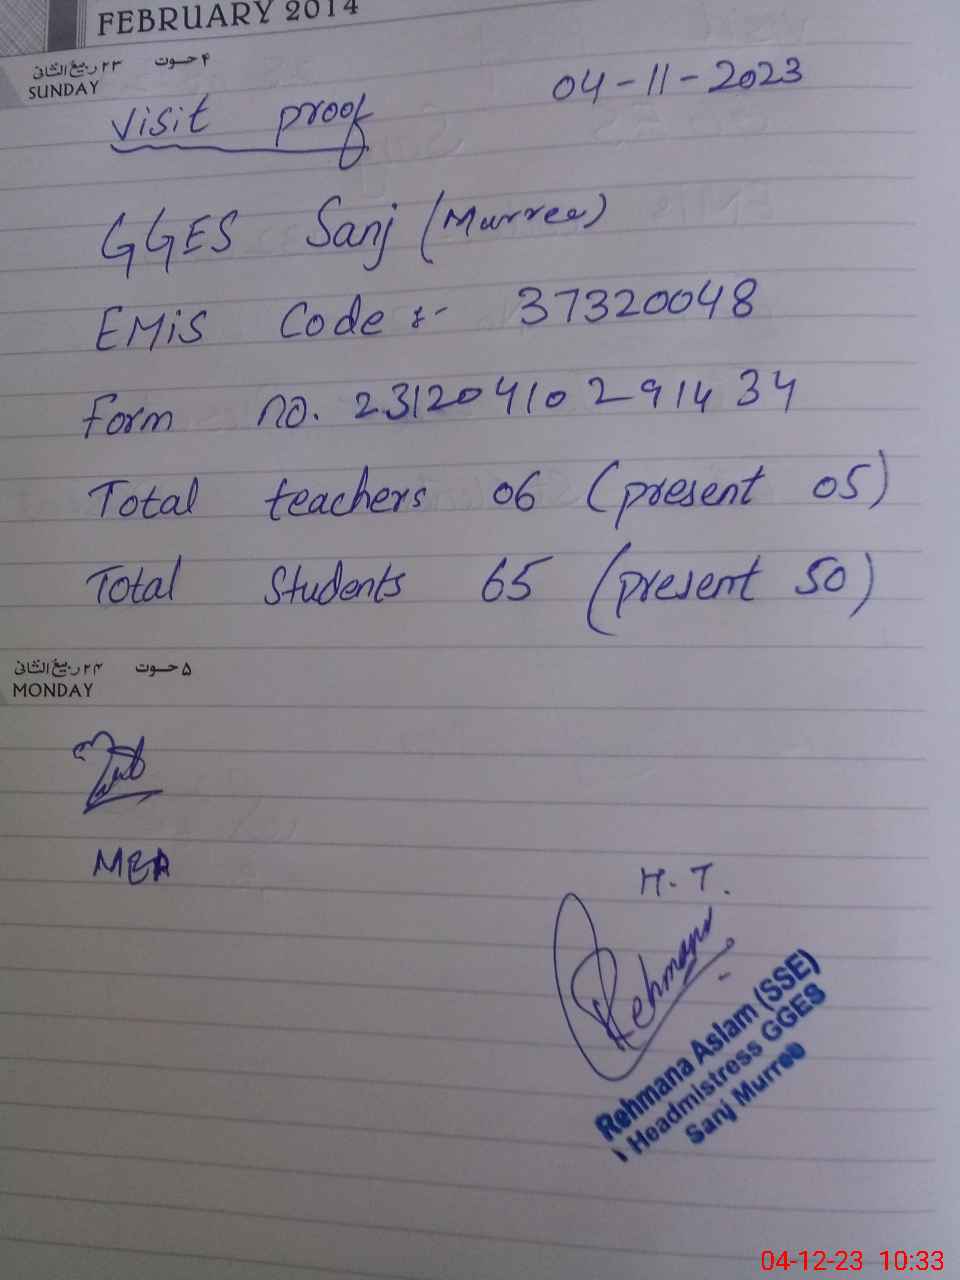 FEBRUARY 2014
۲۳ ربیع الثانی ۴ حوت
SUNDAY
04-11-2023
Visit proof
GGES Sanj (Murree)
EMiS Code :- 37320048
Form no. 23120410291434
Total teachers 06 (present 05)
Total Students 65 (present 50)
۲۴ ربیع الثانی ۵ حوت
MONDAY
MEA
H.T.
Rehmana
Rehmana Aslam (SSE)
Headmistress GGES
Sanj Murree
04-12-23 10:33